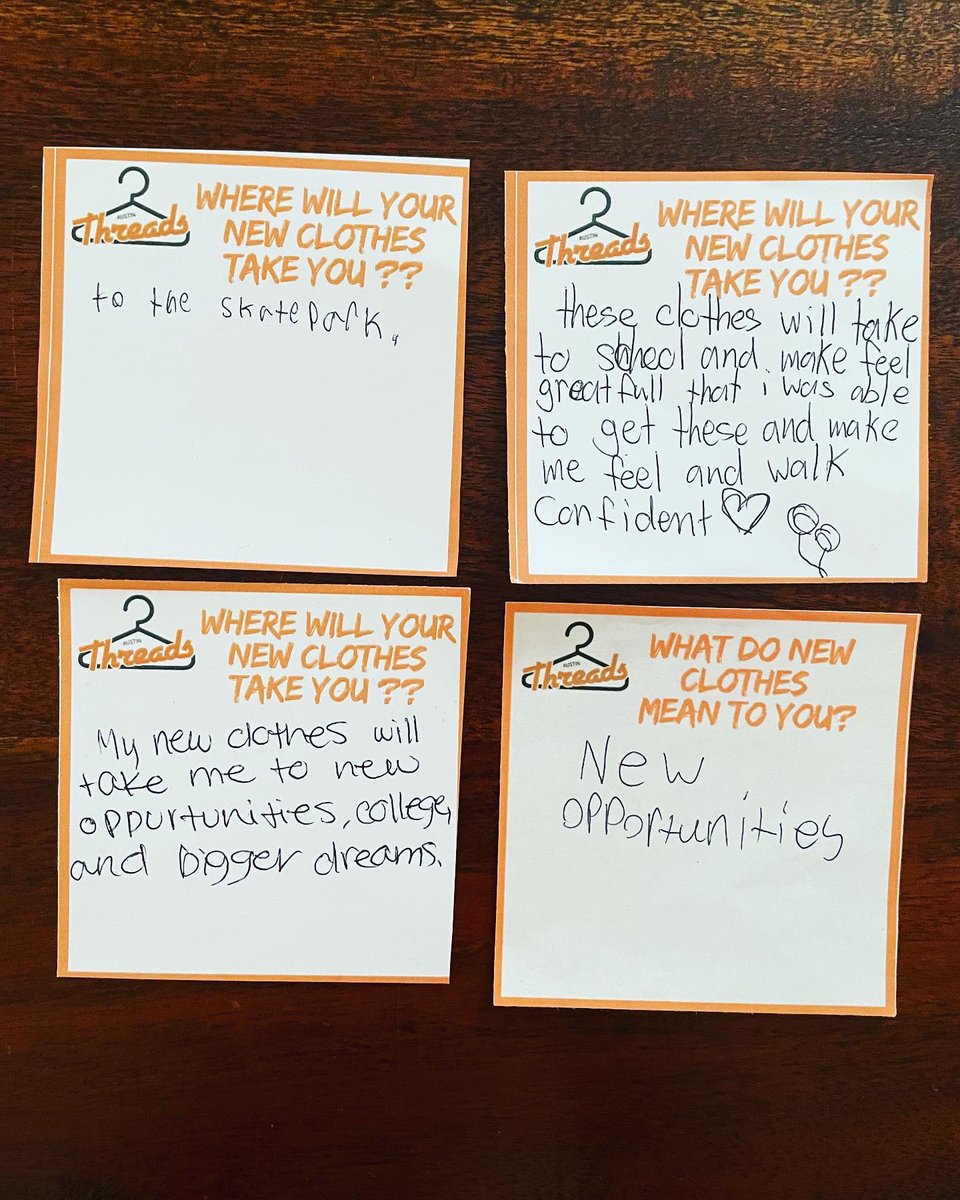 AUSTIN
Threads
WHERE WILL YOUR
NEW CLOTHES
TAKE YOU ??
to the skatepark.
AUSTIN
Threads
WHERE WILL YOUR
NEW CLOTHES
TAKE YOU ??
these clothes will take
to school and make feel
greatfull that i was able
to get these and make
me feel and walk
confident
AUSTIN
Threads
WHERE WILL YOUR
NEW CLOTHES
TAKE YOU ??
My new clothes will
take me to new
oppurtunities, college,
and bigger dreams.
AUSTIN
Threads
WHAT DO NEW
CLOTHES
MEAN TO YOU?
New
opportunities